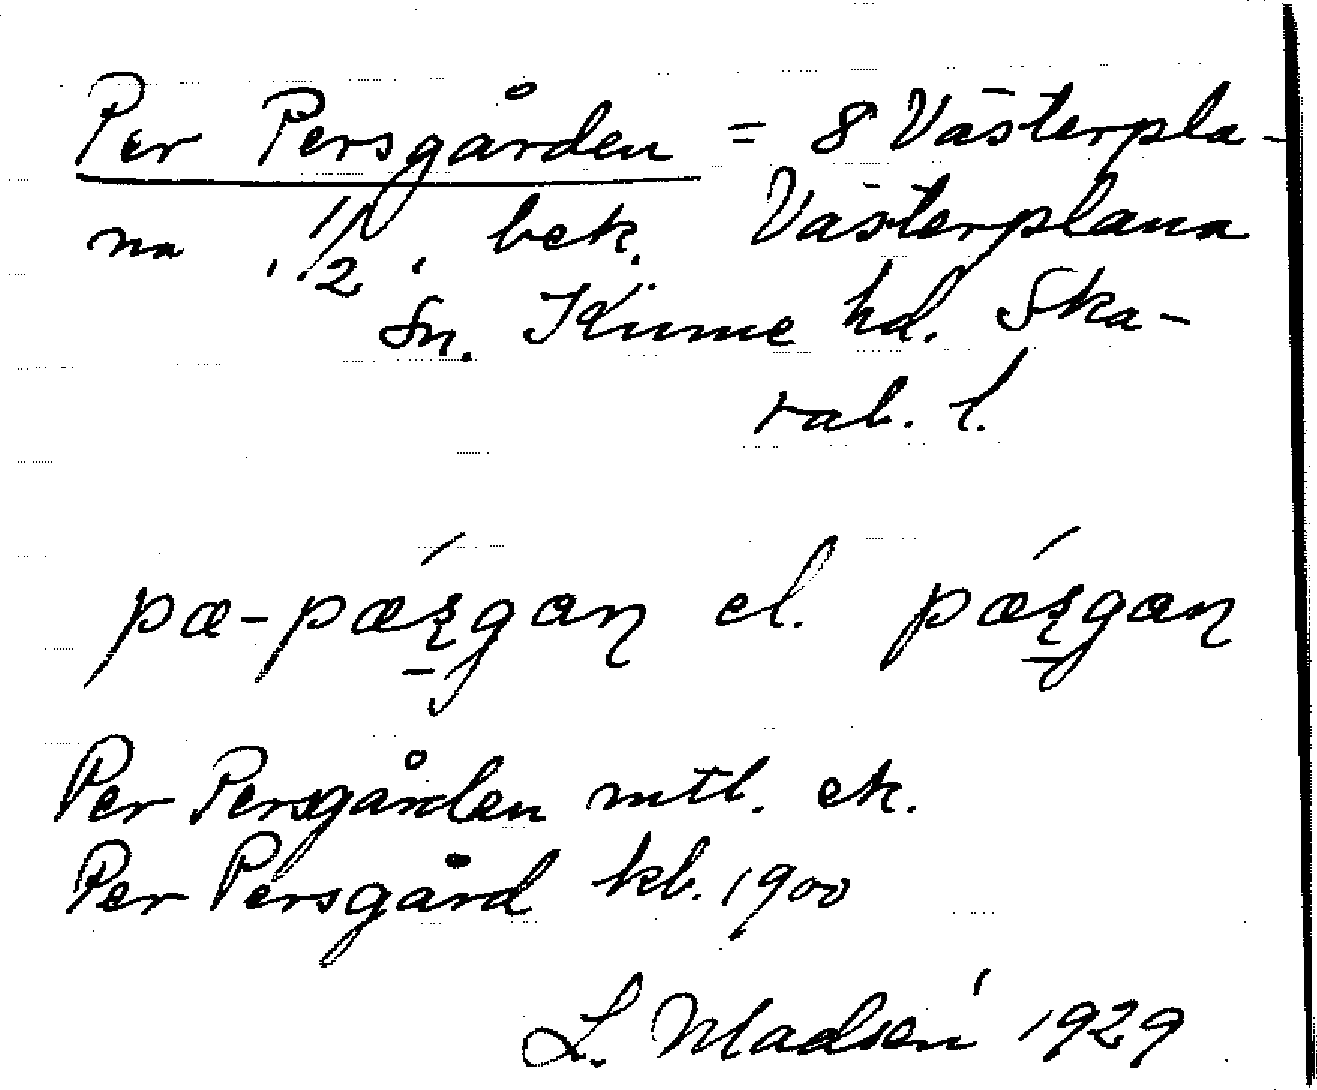 Per Persgården = 8 Västerpla-
na, 1/2, bek. Västerplana
Sn. Kinne hd. Ska-
rab. l.
pæ-pǽşgaɳ el. pǽşgaɳ
Per Persgården mtl. ek.
Per Persgård kb. 1900
L. Madsén 1929